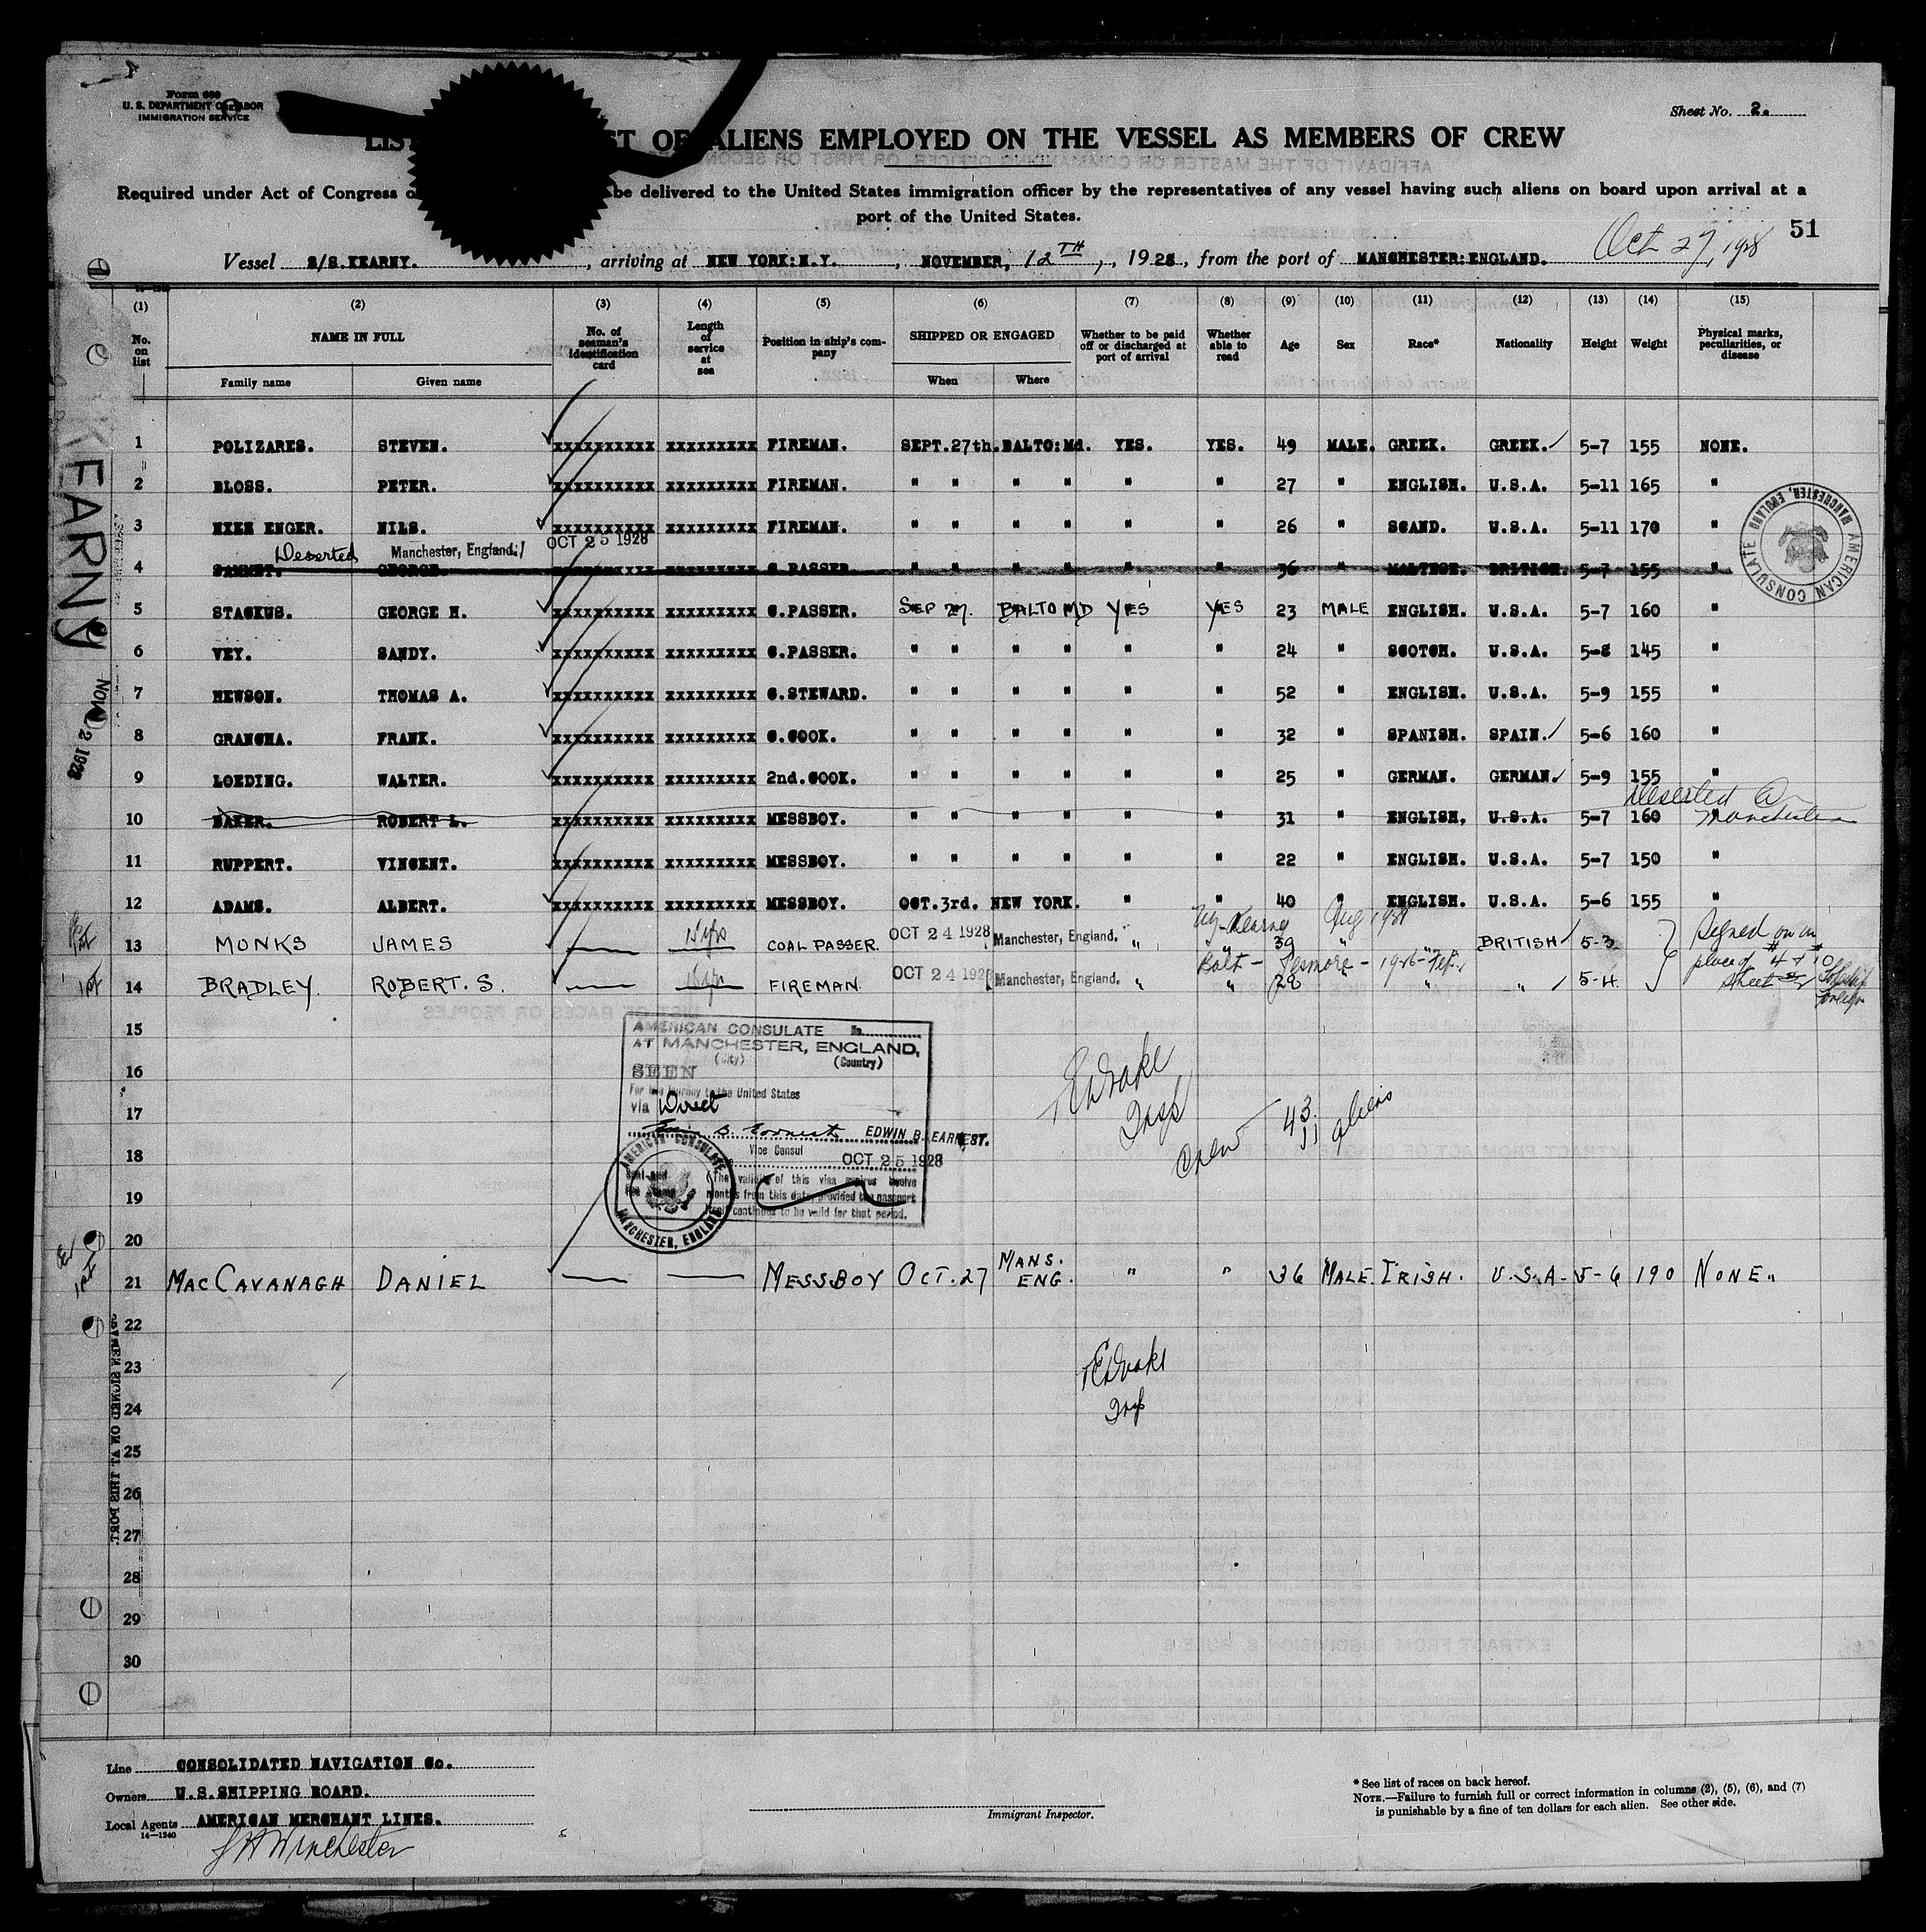 Form 689
U. S. DEPARTMENT OF LABOR
IMMIGRATION SERVICE
Sheet No. 2.
LIST ST OF ALIENS EMPLOYED ON THE VESSEL AS MEMBERS OF CREW
Required under Act of Congress be delivered to the United States immigration officer by the representatives of any vessel having such aliens on board upon arrival at a
port of the United States.
51
Oct 27, 1928
Vessel S/S.KEARNY. , arriving at NEW YORK:N.Y. , NOVEMBER, 12TH , 1928, from the port of MANCHESTER:ENGLAND.
(1) (2) (3) (4) (5) (6) (7) (8) (9) (10) (11) (12) (13) (14) (15)
No. on list NAME IN FULL No. of seaman's identification card Length of service at sea Position in ship's company SHIPPED OR ENGAGED Whether to be paid off or discharged at port of arrival Whether able to read Age Sex Race* Nationality Height Weight Physical marks, peculiarities, or disease
Family name Given name When Where
1 POLIZARES. STEVEN. xxxxxxxxxx xxxxxxxxx FIREMAN. SEPT.27th. BALTO:Md. YES. YES. 49 MALE. GREEK. GREEK. 5-7 155 NONE.
2 BLOSS. PETER. xxxxxxxxxx xxxxxxxxx FIREMAN. " " " " " " 27 " ENGLISH. U.S.A. 5-11 165 "
3 NIEN ENGER. NILS. xxxxxxxxxx xxxxxxxxx FIREMAN. " " " " " " 26 " SCAND. U.S.A. 5-11 170 "
Deserted Manchester, England. OCT 25 1928
4 SAMMUT. GEORGE. xxxxxxxxxx xxxxxxxxx C.PASSER " " " " " " 36 " MALTESE. BRITISH. 5-7 155 "
5 STACKUS. GEORGE H. xxxxxxxxxx xxxxxxxxx C.PASSER. SEP 27. BALTO MD YES YES 23 MALE ENGLISH. U.S.A. 5-7 160 "
6 VEY. SANDY. xxxxxxxxxx xxxxxxxxx C.PASSER. " " " " " " 24 " SCOTCH. U.S.A. 5-8 145 "
7 HEWSON. THOMAS A. xxxxxxxxxx xxxxxxxxx C.STEWARD. " " " " " " 52 " ENGLISH. U.S.A. 5-9 155 "
8 GRANCHA. FRANK. xxxxxxxxxx xxxxxxxxx C.COOK. " " " " " " 32 " SPANISH. SPAIN. 5-6 160 "
9 LOEDING. WALTER. xxxxxxxxxx xxxxxxxxx 2nd.COOK. " " " " " " 25 " GERMAN. GERMAN. 5-9 155 "
Deserted @ Manchester
10 BAKER. ROBERT L. xxxxxxxxxx xxxxxxxxx MESSBOY. " " " " " " 31 " ENGLISH. U.S.A. 5-7 160
11 RUPPERT. VINCENT. xxxxxxxxxx xxxxxxxxx MESSBOY. " " " " " " 22 " ENGLISH. U.S.A. 5-7 150 "
12 ADAMS. ALBERT. xxxxxxxxxx xxxxxxxxx MESSBOY. OCT.3rd. NEW YORK. " " 40 " ENGLISH. U.S.A. 5-6 155 "
Kearny Aug 1928
13 MONKS JAMES — 15 yrs COAL PASSER. OCT 24 1928 Manchester, England. " " 39 " " BRITISH 5-3 Signed on in
Balt - 1926 - Feb. place of #4 + #10
14 BRADLEY. ROBERT. S. — FIREMAN. OCT 24 1928 Manchester, England. " " 28 " " 5-4. sheet
15
16
17
18
19
20
AMERICAN CONSULATE No.
AT MANCHESTER, ENGLAND,
(City) (Country)
SEEN
For the journey to the United States
via Direct
Edwin B. Earnest EDWIN B. EARNEST.
Vice Consul
OCT 25 1928
(The validity of this visa expires twelve
months from this date, provided the passport
itself continues to be valid for that period.
AMERICAN CONSULATE
MANCHESTER, ENGLAND
Drake
Insp
Crew 43
11 aliens
21 MACCAVANAGH DANIEL — — MESSBOY OCT.27 MANS. ENG. " " 36 MALE. IRISH. U.S.A- 5-6 190 NONE.
22
23
24
25
26
27
28
29
30
Drake
Insp
KEARNY
NOV 12 1928
SEAMEN SIGNED ON AT THIS PORT.
AMERICAN CONSULATE
MANCHESTER, ENGLAND
Line CONSOLIDATED NAVIGATION Co.
Owners U.S.SHIPPING BOARD.
Local Agents AMERICAN MERCHANT LINES.
14—1240
J H Winchester
Immigrant Inspector.
* See list of races on back hereof.
NOTE.—Failure to furnish full or correct information in columns (2), (5), (6), and (7)
is punishable by a fine of ten dollars for each alien. See other side.